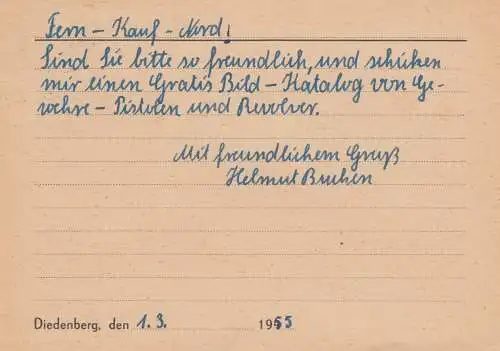 Fern - Kauf - Nord!
Sind Sie bitte so freundlich, und schicken
mir einen Gratis Bild - Katalog von Ge-
wehre - Pistolen und Revolver.
Mit freundlichem Gruß
Helmut Buchen
Diedenberg, den 1.3. 1955